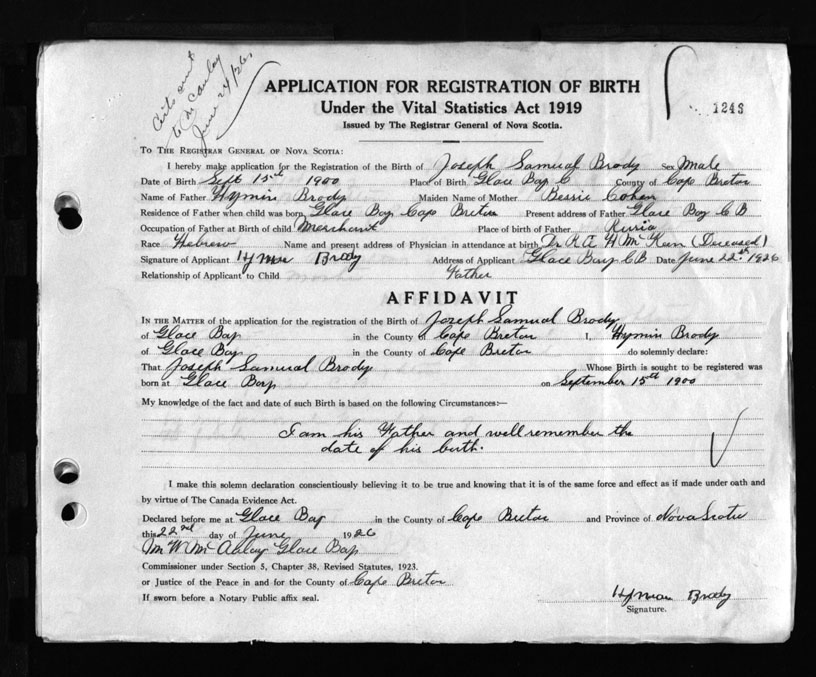 June 24/26
APPLICATION FOR REGISTRATION OF BIRTH
Under the Vital Statistics Act 1919
1243
Issued by The Registrar General of Nova Scotia.
TO THE REGISTRAR GENERAL OF NOVA SCOTIA:
I hereby make application for the Registration of the Birth of Joseph Samual Brody Sex Male
Date of Birth Sept 15th 1900 Place of Birth Glace Bay C County of Cape Breton
Name of Father Hymin Brody Maiden Name of Mother Bessie Cohen
Residence of Father when child was born Glace Bay Cape Breton Present address of Father Glace Bay C B
Occupation of Father at Birth of child Merchant Place of birth of Father Rusia
Race Hebrew Name and present address of Physician in attendance at birth Dr (Deceased)
Signature of Applicant Hyman Brody Address of Applicant Glace Bay C B Date June 22nd 1926
Relationship of Applicant to Child Father
AFFIDAVIT
IN THE MATTER of the application for the registration of the Birth of Joseph Samual Brody
of Glace Bay in the County of Cape Breton I, Hymin Brody
of Glace Bay in the County of Cape Breton do solemnly declare:
That Joseph Samual Brody Whose Birth is sought to be registered was
born at Glace Bay on September 15th 1900
My knowledge of the fact and date of such Birth is based on the following Circumstances:—
I am his Father and well remember the
date of his birth.
I make this solemn declaration conscientiously believing it to be true and knowing that it is of the same force and effect as if made under oath and
by virtue of The Canada Evidence Act.
Declared before me at Glace Bay in the County of Cape Breton and Province of Nova Scotia
this 22nd day of June 1926
Glace Bay
Commissioner under Section 5, Chapter 38, Revised Statutes, 1923.
or Justice of the Peace in and for the County of Cape Breton
If sworn before a Notary Public affix seal.
Hyman Brody
Signature.